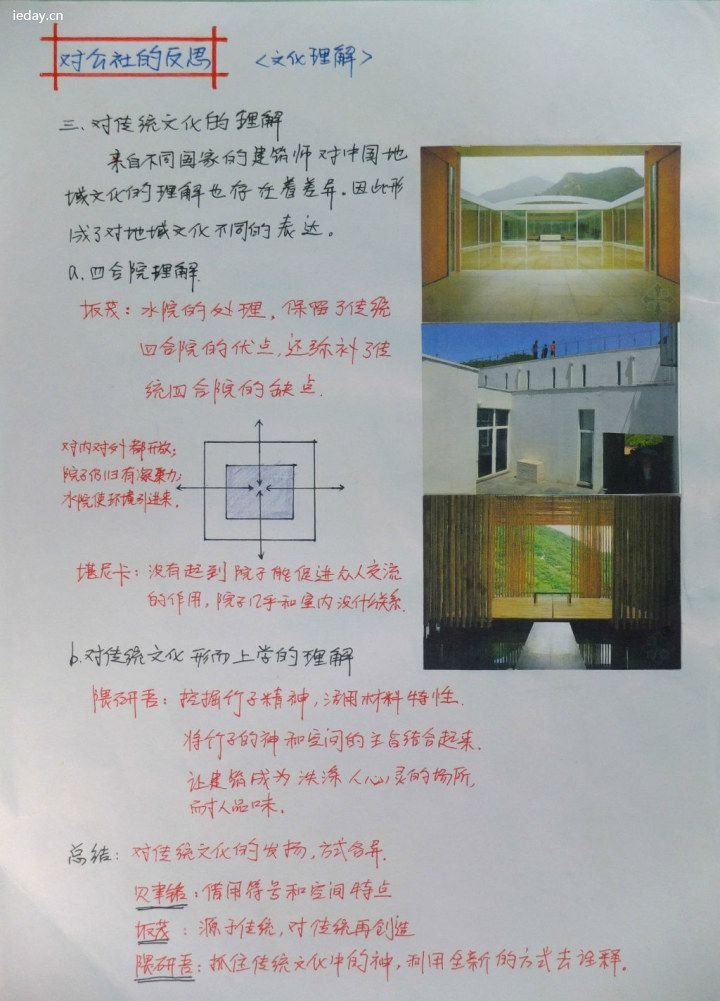 ieday.cn
对公社的反思 <文化理解>
三、对传统文化的理解
来自不同国家的建筑师对中国地
域文化的理解也存在着差异。因此形
成了对地域文化不同的表达。
a.四合院理解
坂茂：水院的处理，保留了传统
四合院的优点，还弥补了传
统四合院的缺点.
对内对外都开放；
院子仍旧有凝聚力；
水院使环境引进来。
堪尼卡：没有起到院子能促进众人交流
的作用，院子几乎和室内没什么关系.
b.对传统文化形而上学的理解
隈研吾：挖掘竹子精神，活用材料特性.
将竹子的神和空间的主旨结合起来.
让建筑成为洗涤人心灵的场所,
耐人品味。
总结：对传统文化的发扬，方式各异.
贝聿铭：借用符号和空间特点
坂茂：源于传统，对传统再创造
隈研吾：抓住传统文化中的神，利用全新的方式去诠释。